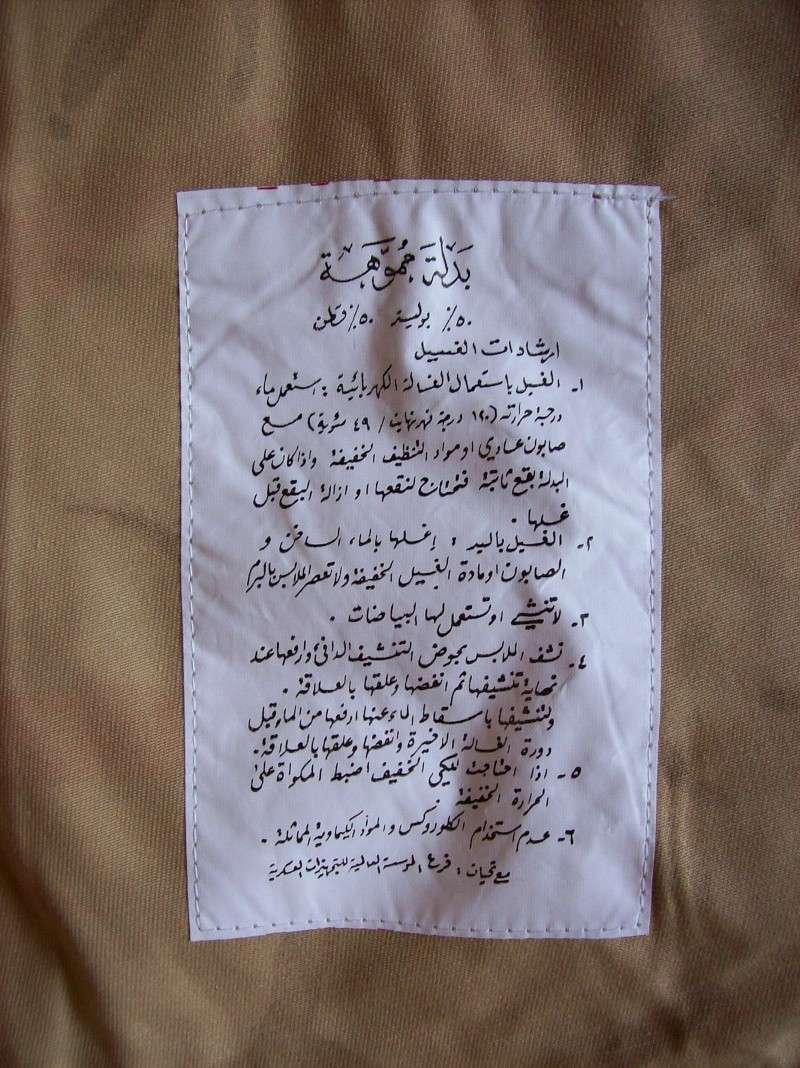 بَدلَة مُموَّهَة
٥٠٪ بوليستر ٥٠٪ قطن
ارشادات الغسيل
١- الغسيل باستعمال الغسالة الكهربائية : استعمل ماء
درجة حرارته (١٢٠ درجة فهرنهايت / ٤٩ مئوية) مع
صابون عادي او مواد التنظيف الخفيفة واذا كان على
البدلة بقع ثابتة فتحتاج لنقعها او ازالة البقع قبل
غسلها .
٢- الغسيل باليد : إغسلها بالماء الساخن و
الصابون او مادة الغسيل الخفيفة ولا تعصر الملابس بالبرم
٣- لا تنشي او تستعمل لها البياضات .
٤- نشف الملابس بحوض التنشيف الدافئ وارفعها عند
نهاية تنشيفها ثم انفضها وعلقها بالعلاقة .
ولتنشيفها باسقاط الماء عنها ارفعها من الماء قبل
دورة الغسالة الاخيرة وانفضها وعلقها بالعلاقة .
٥- اذا احتاجت للكي الخفيف اضبط المكواة على
الحرارة الخفيفة .
٦- عدم استخدام الكلوروكس والمواد الكيماوية المماثلة .
مع تحيات : فرع المؤسسة العالمية للتجهيزات العسكرية